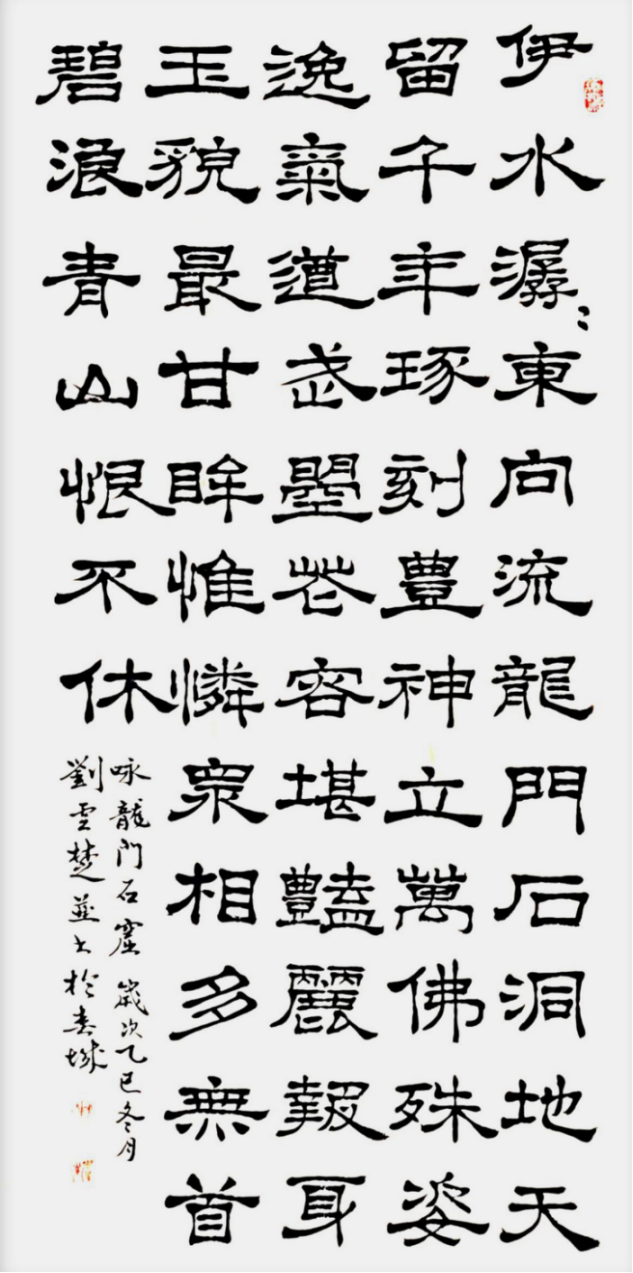 伊水潺〻東向流龍門石洞地天
留千年琢刻豐神立萬佛殊姿
逸氣遒武曌花容堪豔麗報身
玉貌最甘眸惟憐衆相多無首
碧浪青山恨不休
咏龍門石窟 歲次乙巳冬月
劉雲楚並书於春城